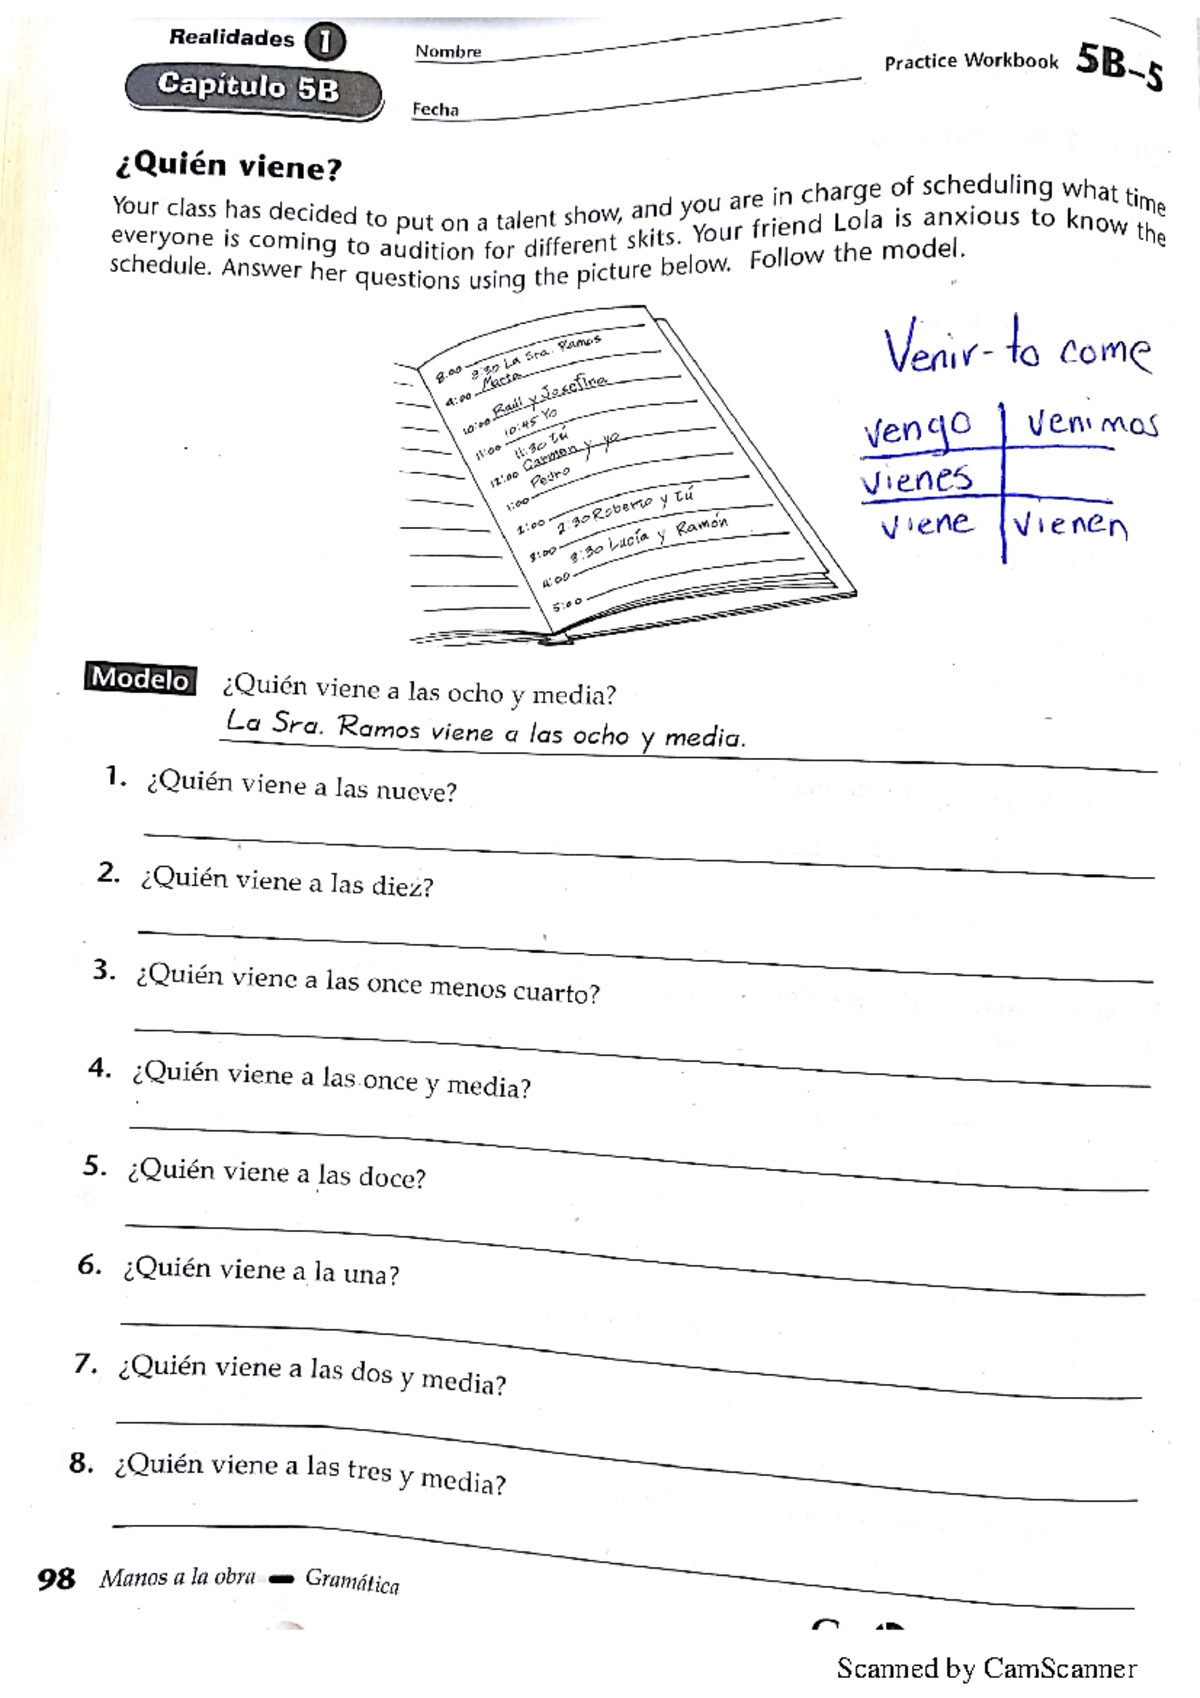 Realidades 1
Nombre
Practice Workbook 5B-5
Capítulo 5B
Fecha
¿Quién viene?
Your class has decided to put on a talent show, and you are in charge of scheduling what time
everyone is coming to audition for different skits. Your friend Lola is anxious to know the
schedule. Answer her questions using the picture below. Follow the model.
8:00
8:30 La Sra. Ramos
9:00 Marta
10:00 Raúl y Josefina
10:45 Yo
11:00
11:30 tú
12:00 Carmen y yo
1:00 Pedro
2:00
2:30 Roberto y tú
3:00
3:30 Lucía y Ramón
4:00
5:00
Venir - to come
vengo venimos
vienes
viene vienen
Modelo ¿Quién viene a las ocho y media?
La Sra. Ramos viene a las ocho y media.
1. ¿Quién viene a las nueve?
2. ¿Quién viene a las diez?
3. ¿Quién viene a las once menos cuarto?
4. ¿Quién viene a las once y media?
5. ¿Quién viene a las doce?
6. ¿Quién viene a la una?
7. ¿Quién viene a las dos y media?
8. ¿Quién viene a las tres y media?
98 Manos a la obra — Gramática
Scanned by CamScanner